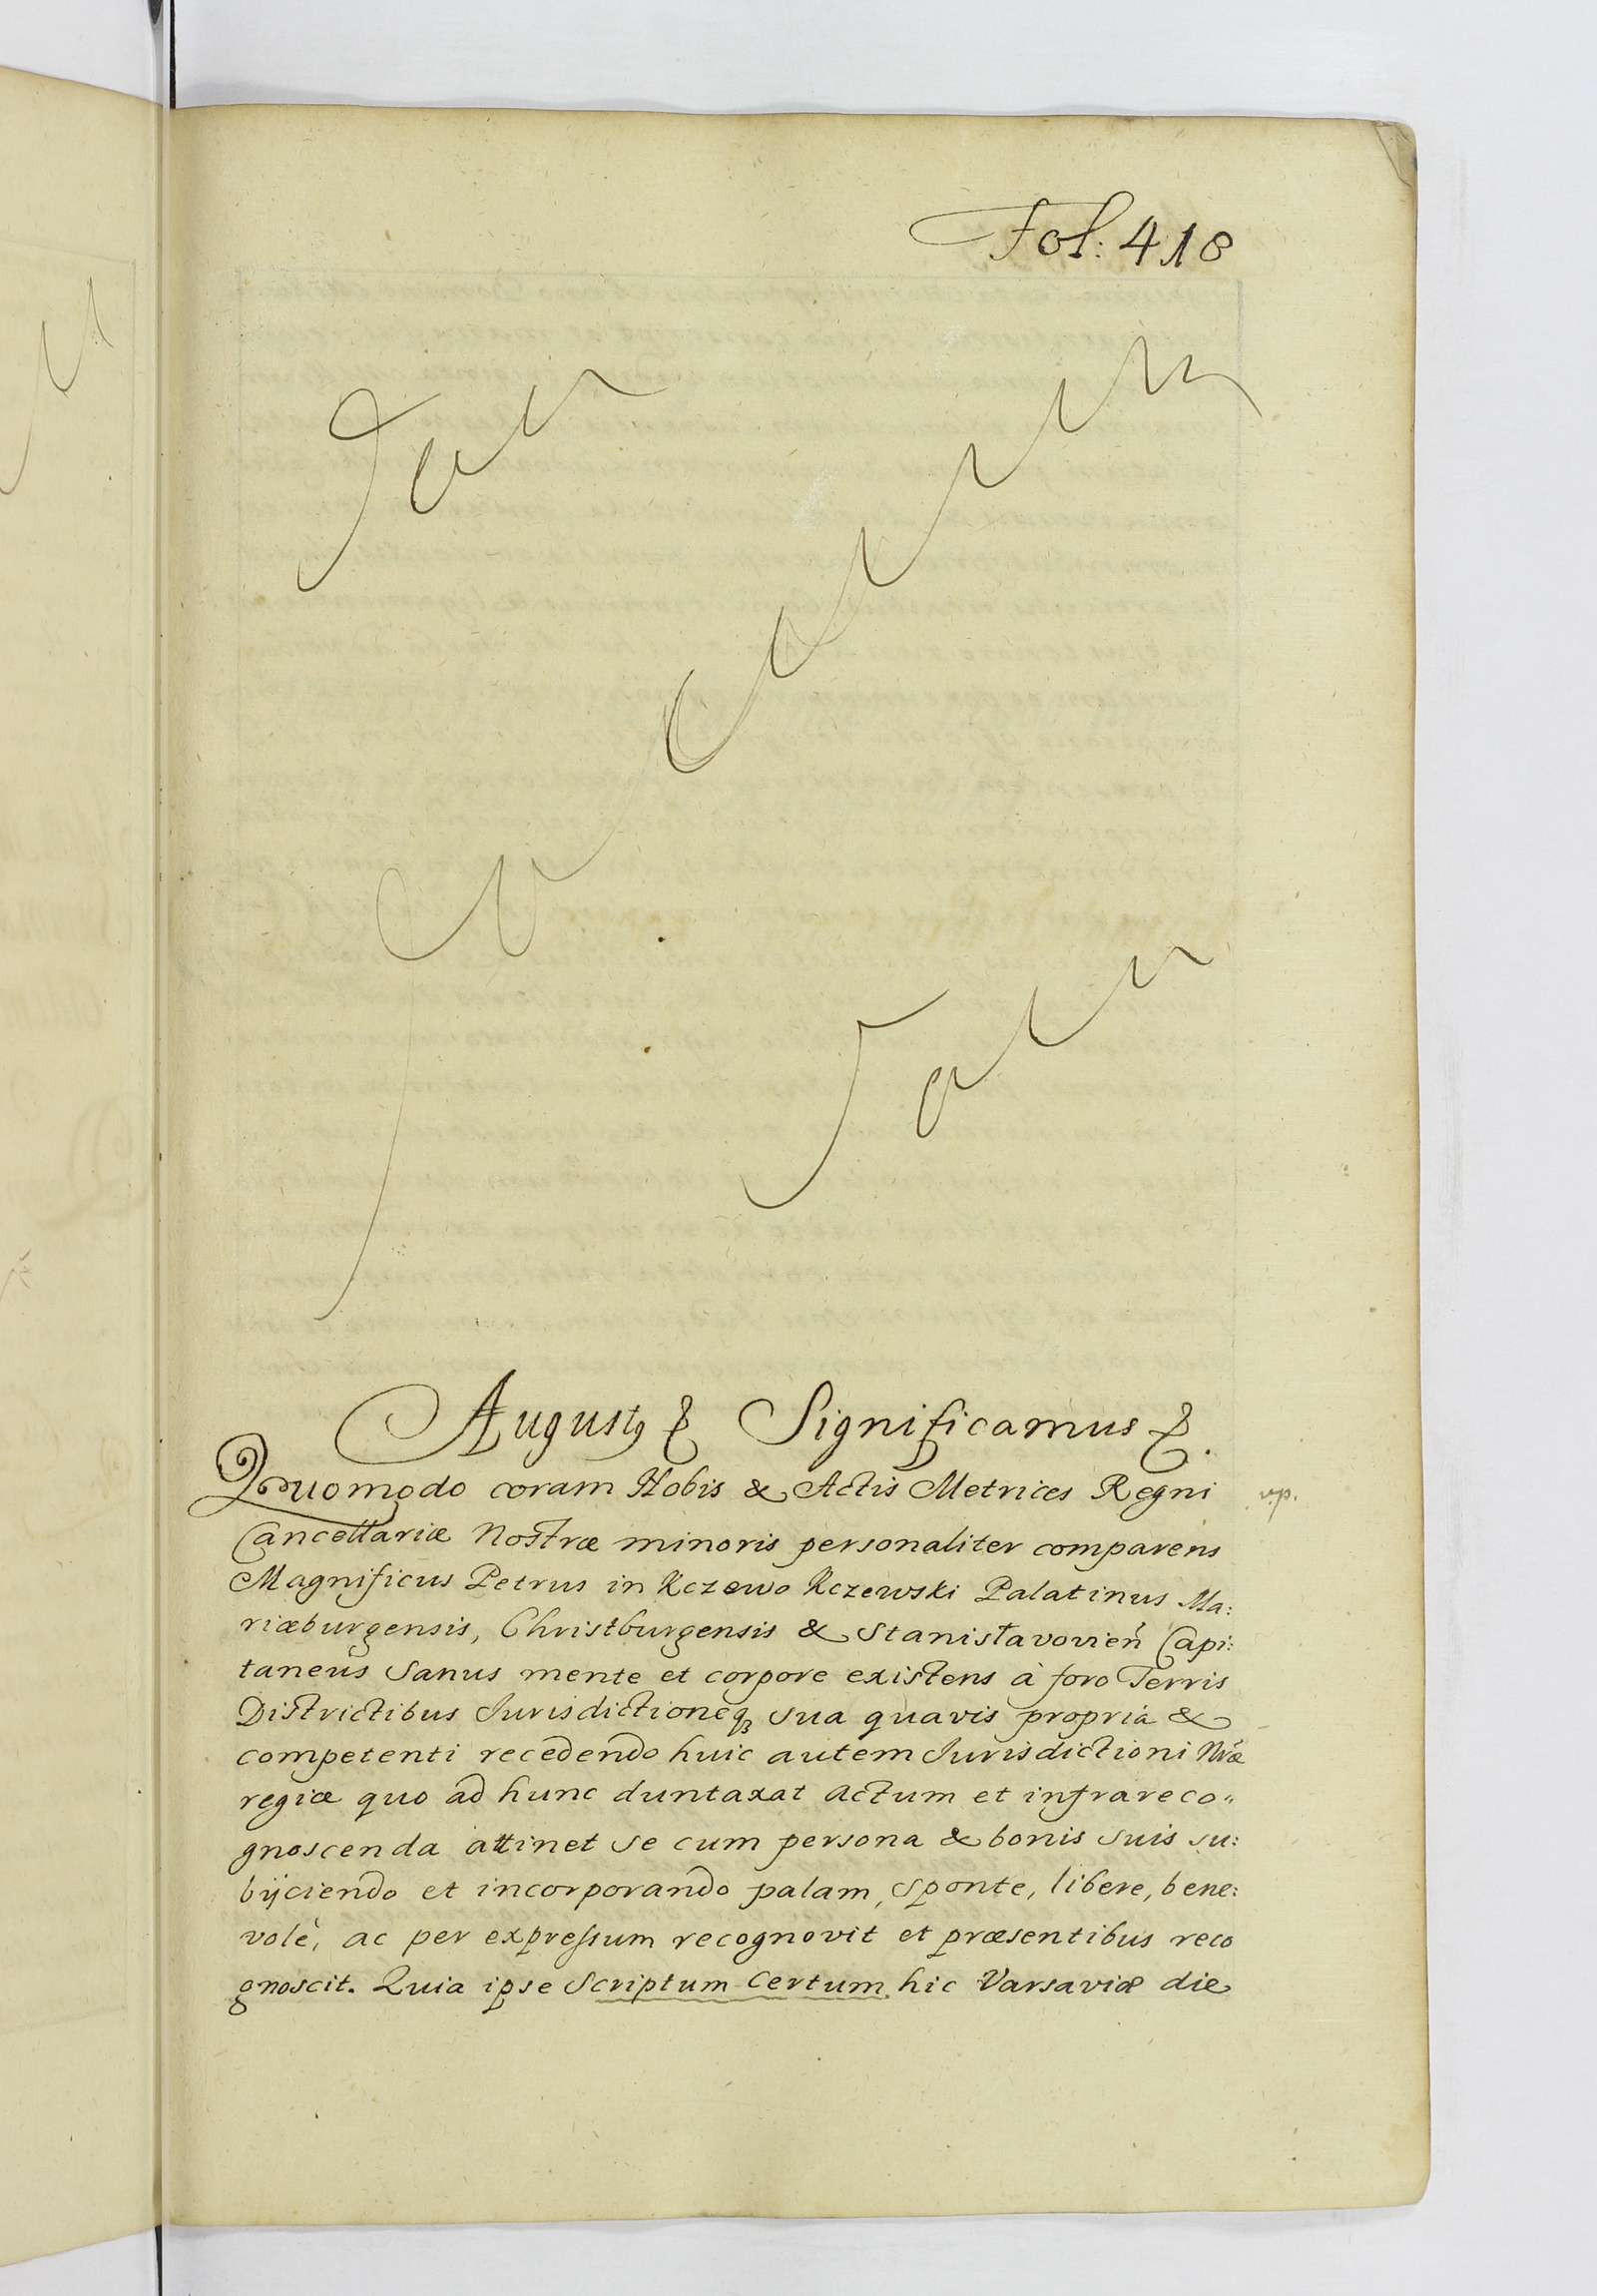 Fol: 418
Jan
vacuum
Jan
Augustq & Significamus &.
Quomodo coram Nobis & Actis Metrices Regni
vip.
Cancellariæ Nostræ minoris personaliter comparens
Magnificus Petrus in Kczewo Kczewski Palatinus Ma:
riæburgensis, Christburgensis & Stanisłavovień Capi:
taneus Sanus mente et corpore existens à foro Terris
Districtibus Jurisdictioneq; sua quavis propriá &
competenti recedendo huic autem Jurisdictioni Nræ
regiæ quo ad hunc duntaxat actum et infrareco„
gnoscenda attinet se cum persona & bonis suis su:
bijciendo et incorporando palam, sponte, libere, bene:
volè, ac per expressum recognovit et præsentibus reco
gnoscit. Quia ipse Scriptum Certum hic Varsaviæ die